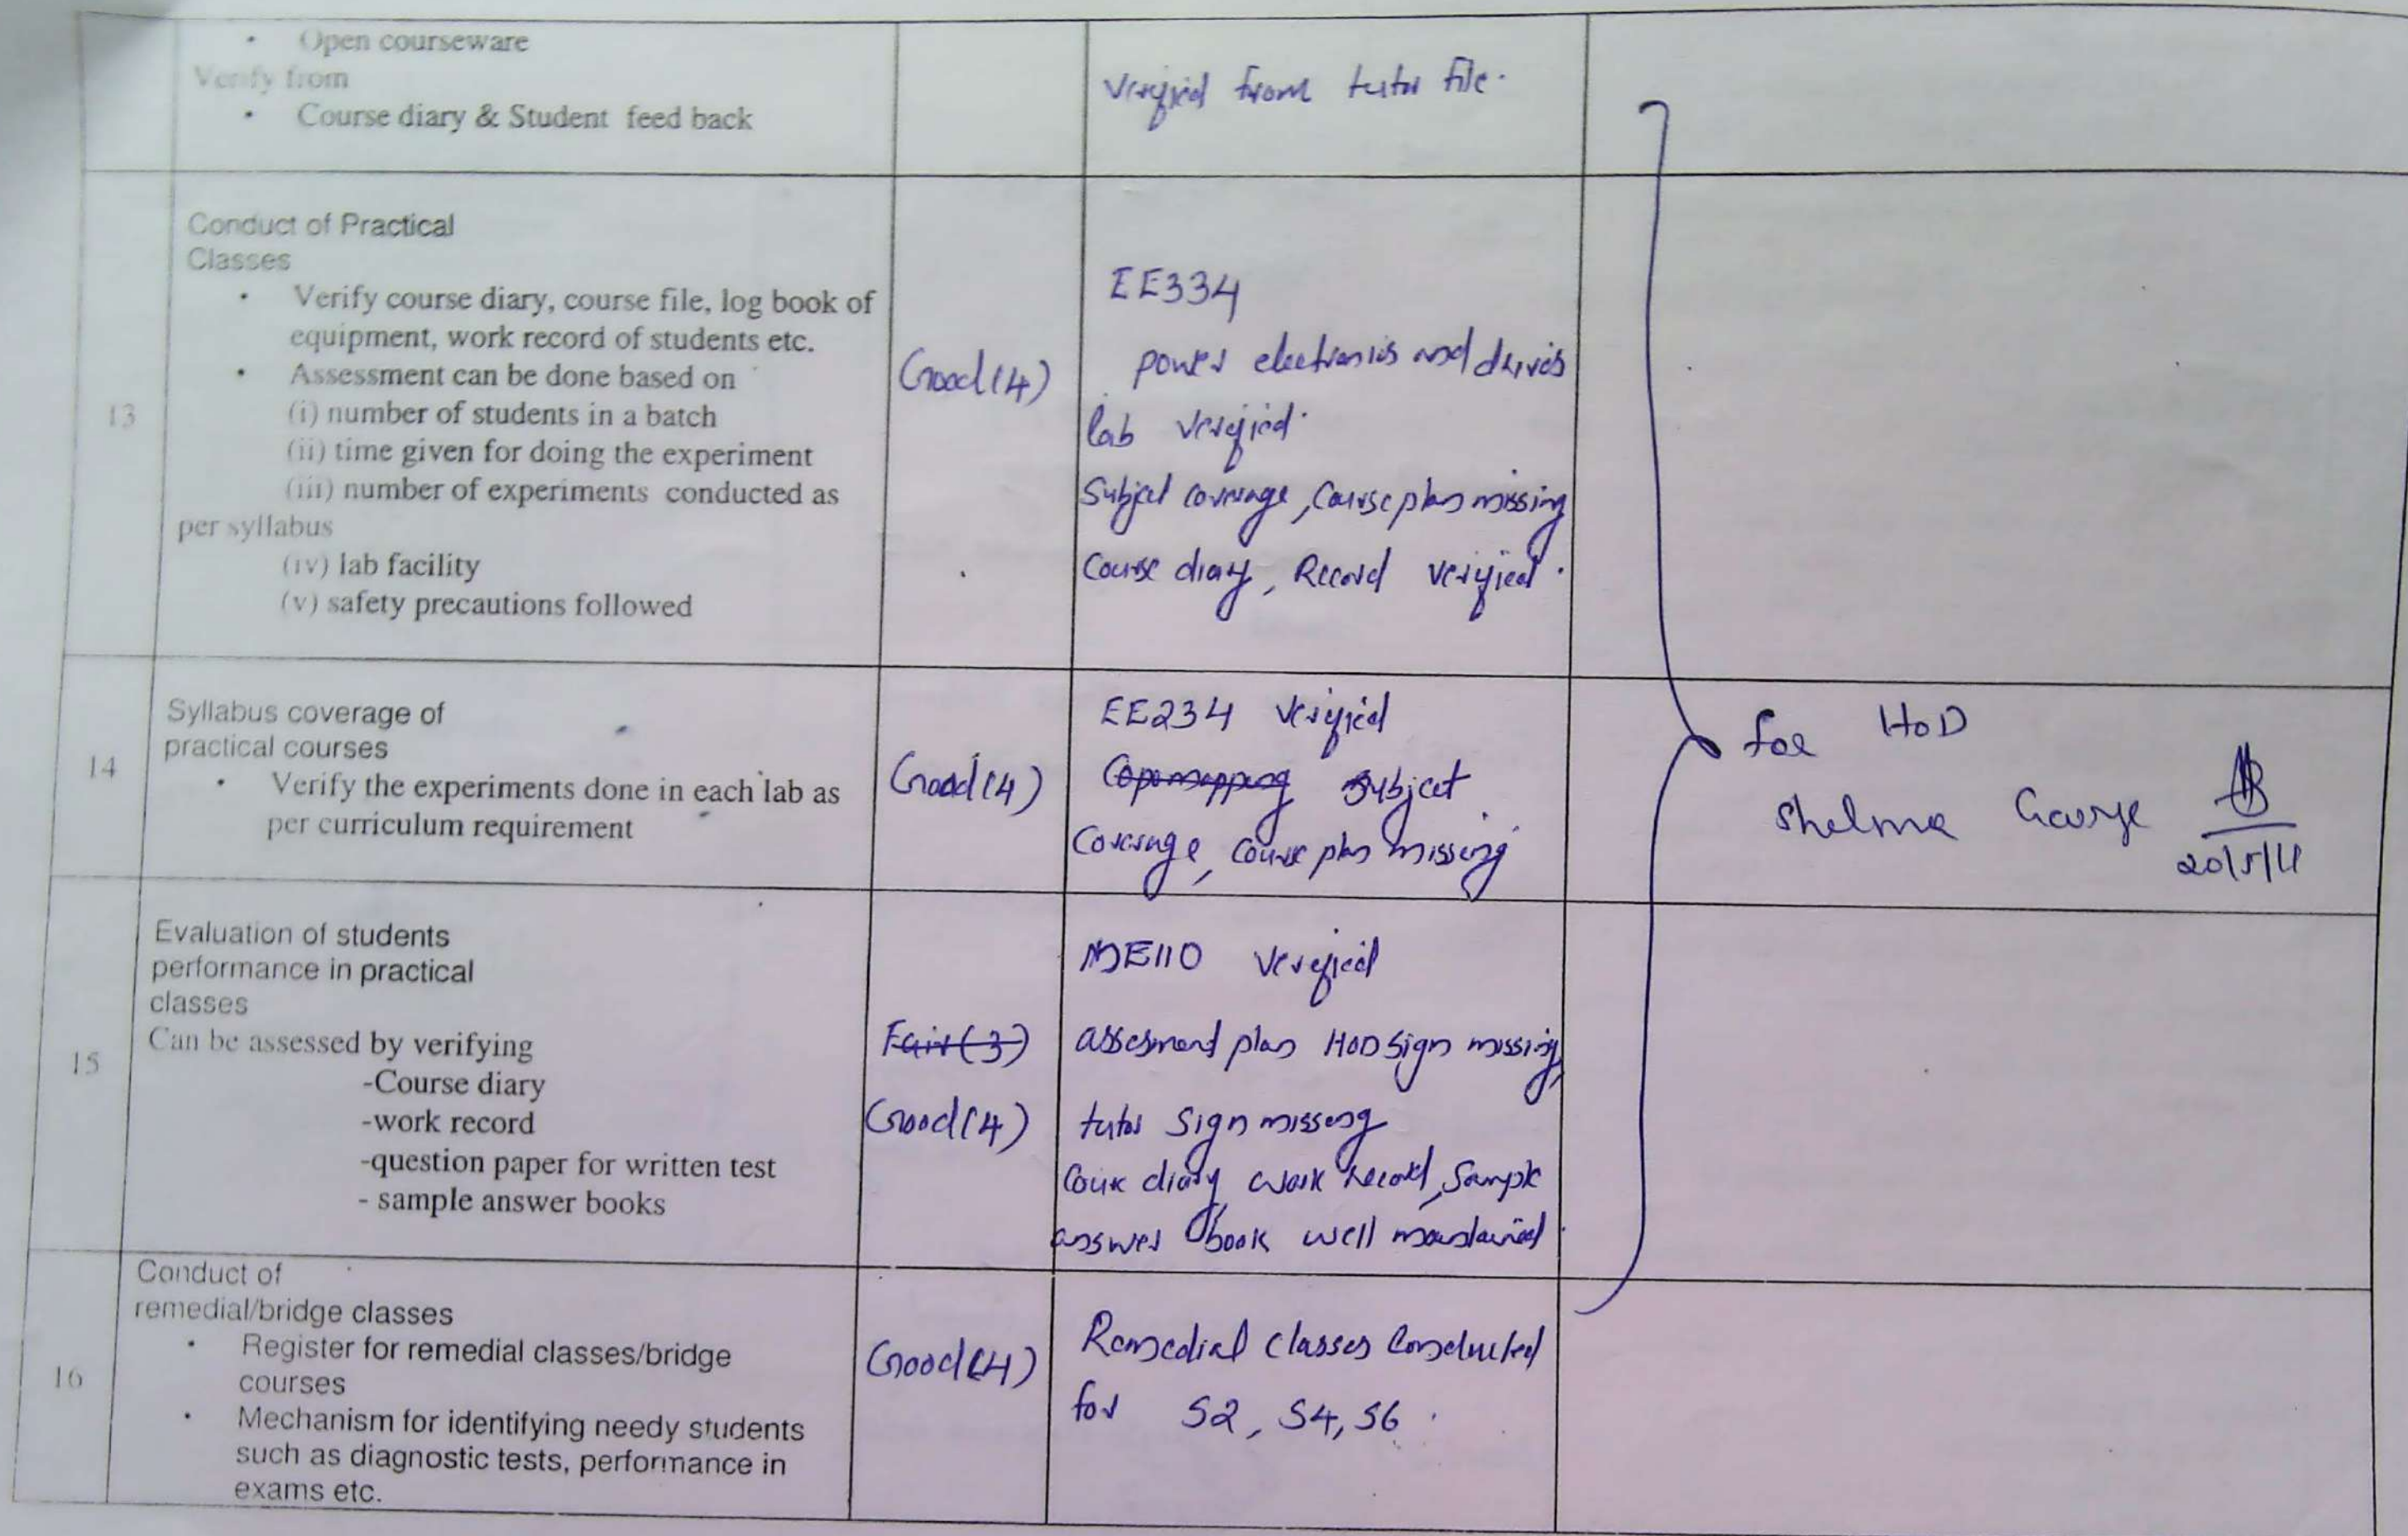 • Open courseware
Verify from
• Course diary & Student feed back
Verified from tutor file.
13
Conduct of Practical
Classes
• Verify course diary, course file, log book of
equipment, work record of students etc.
• Assessment can be done based on
(i) number of students in a batch
(ii) time given for doing the experiment
(iii) number of experiments conducted as
per syllabus
(iv) lab facility
(v) safety precautions followed
Good (4)
EE334
power electronics and drives
lab verified.
Subject coverage, Course plan missing
Course diary, Record verified.
14
Syllabus coverage of
practical courses
• Verify the experiments done in each lab as
per curriculum requirement
Good (4)
EE234 verified
Subject
Coverage, Course plan missing
for HOD
Shelma George
15
Evaluation of students
performance in practical
classes
Can be assessed by verifying
-Course diary
-work record
-question paper for written test
- sample answer books
Fair (3)
Good (4)
ME110 verified
assesment plan HOD sign missing,
tutor sign missing
Course diary, work record, Sample
answer book well maintained.
16
Conduct of
remedial/bridge classes
• Register for remedial classes/bridge
courses
• Mechanism for identifying needy students
such as diagnostic tests, performance in
exams etc.
Good (4)
Remedial classes Conducted
for S2, S4, S6.